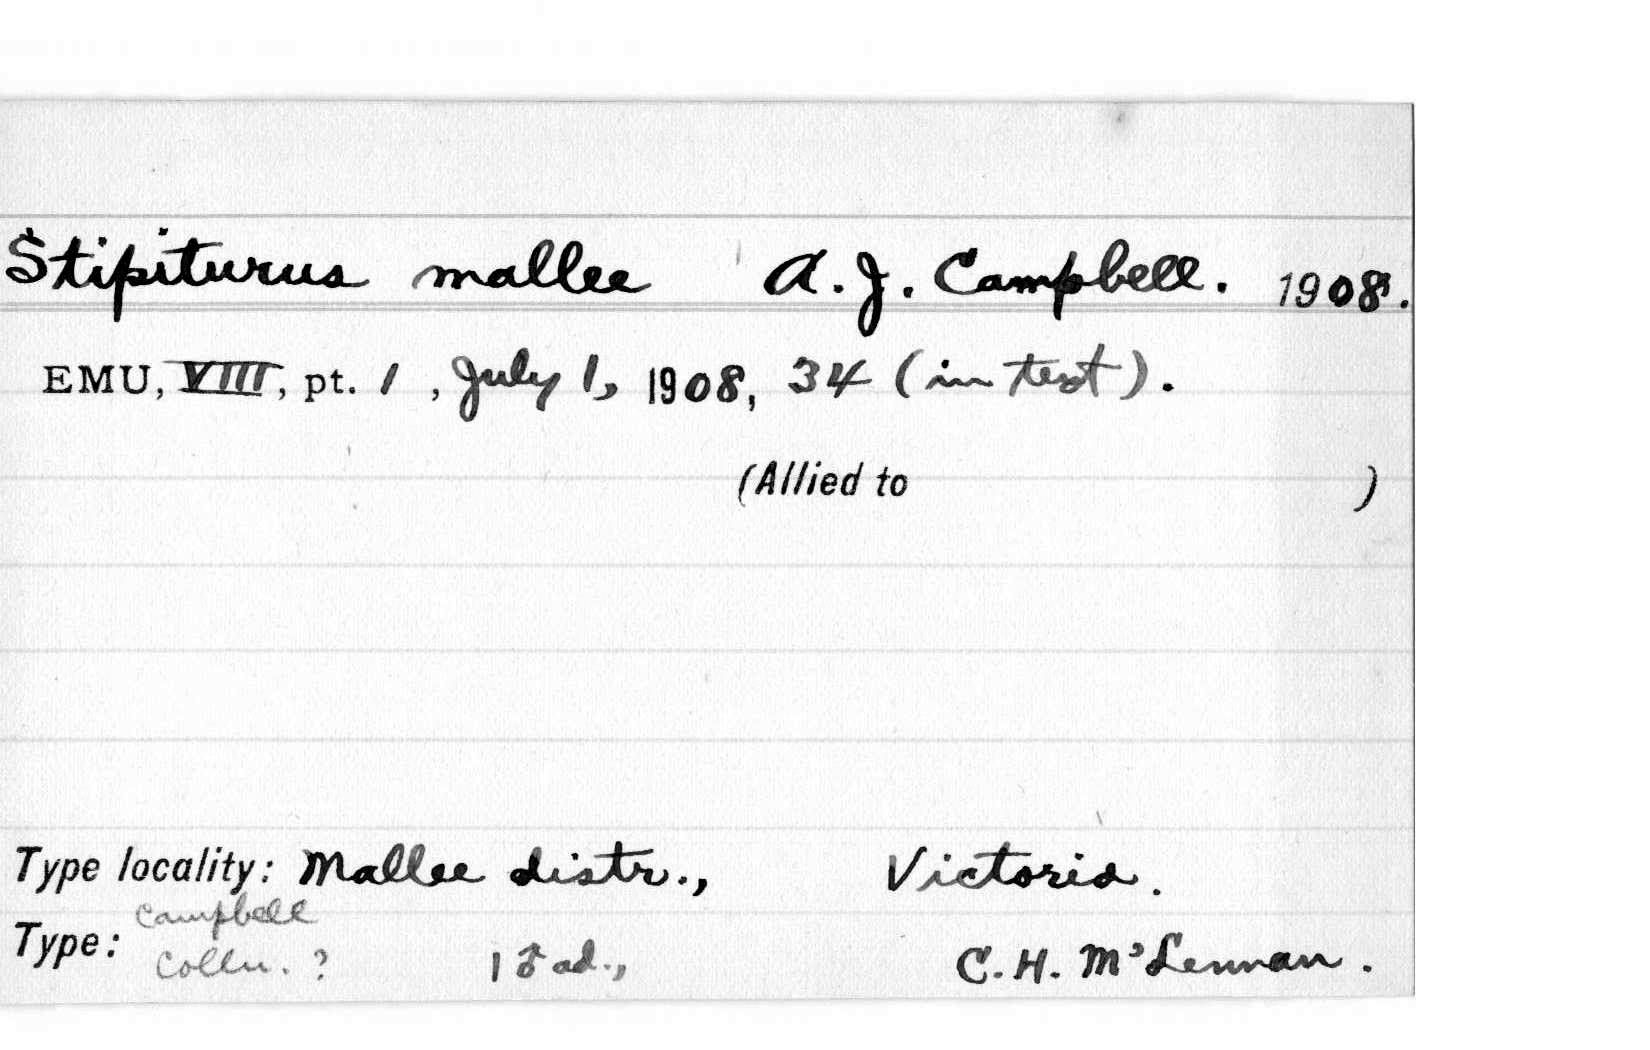 Stipiturus mallee A. J. Campbell. 1908.
EMU, VIII, pt. 1, July 1, 1908, 34 (in text).
(Allied to )
Type locality: Mallee distr., Victoria.
Campbell
Type: Colln. ? 1 ♂ ad., C. H. M'Lennan.